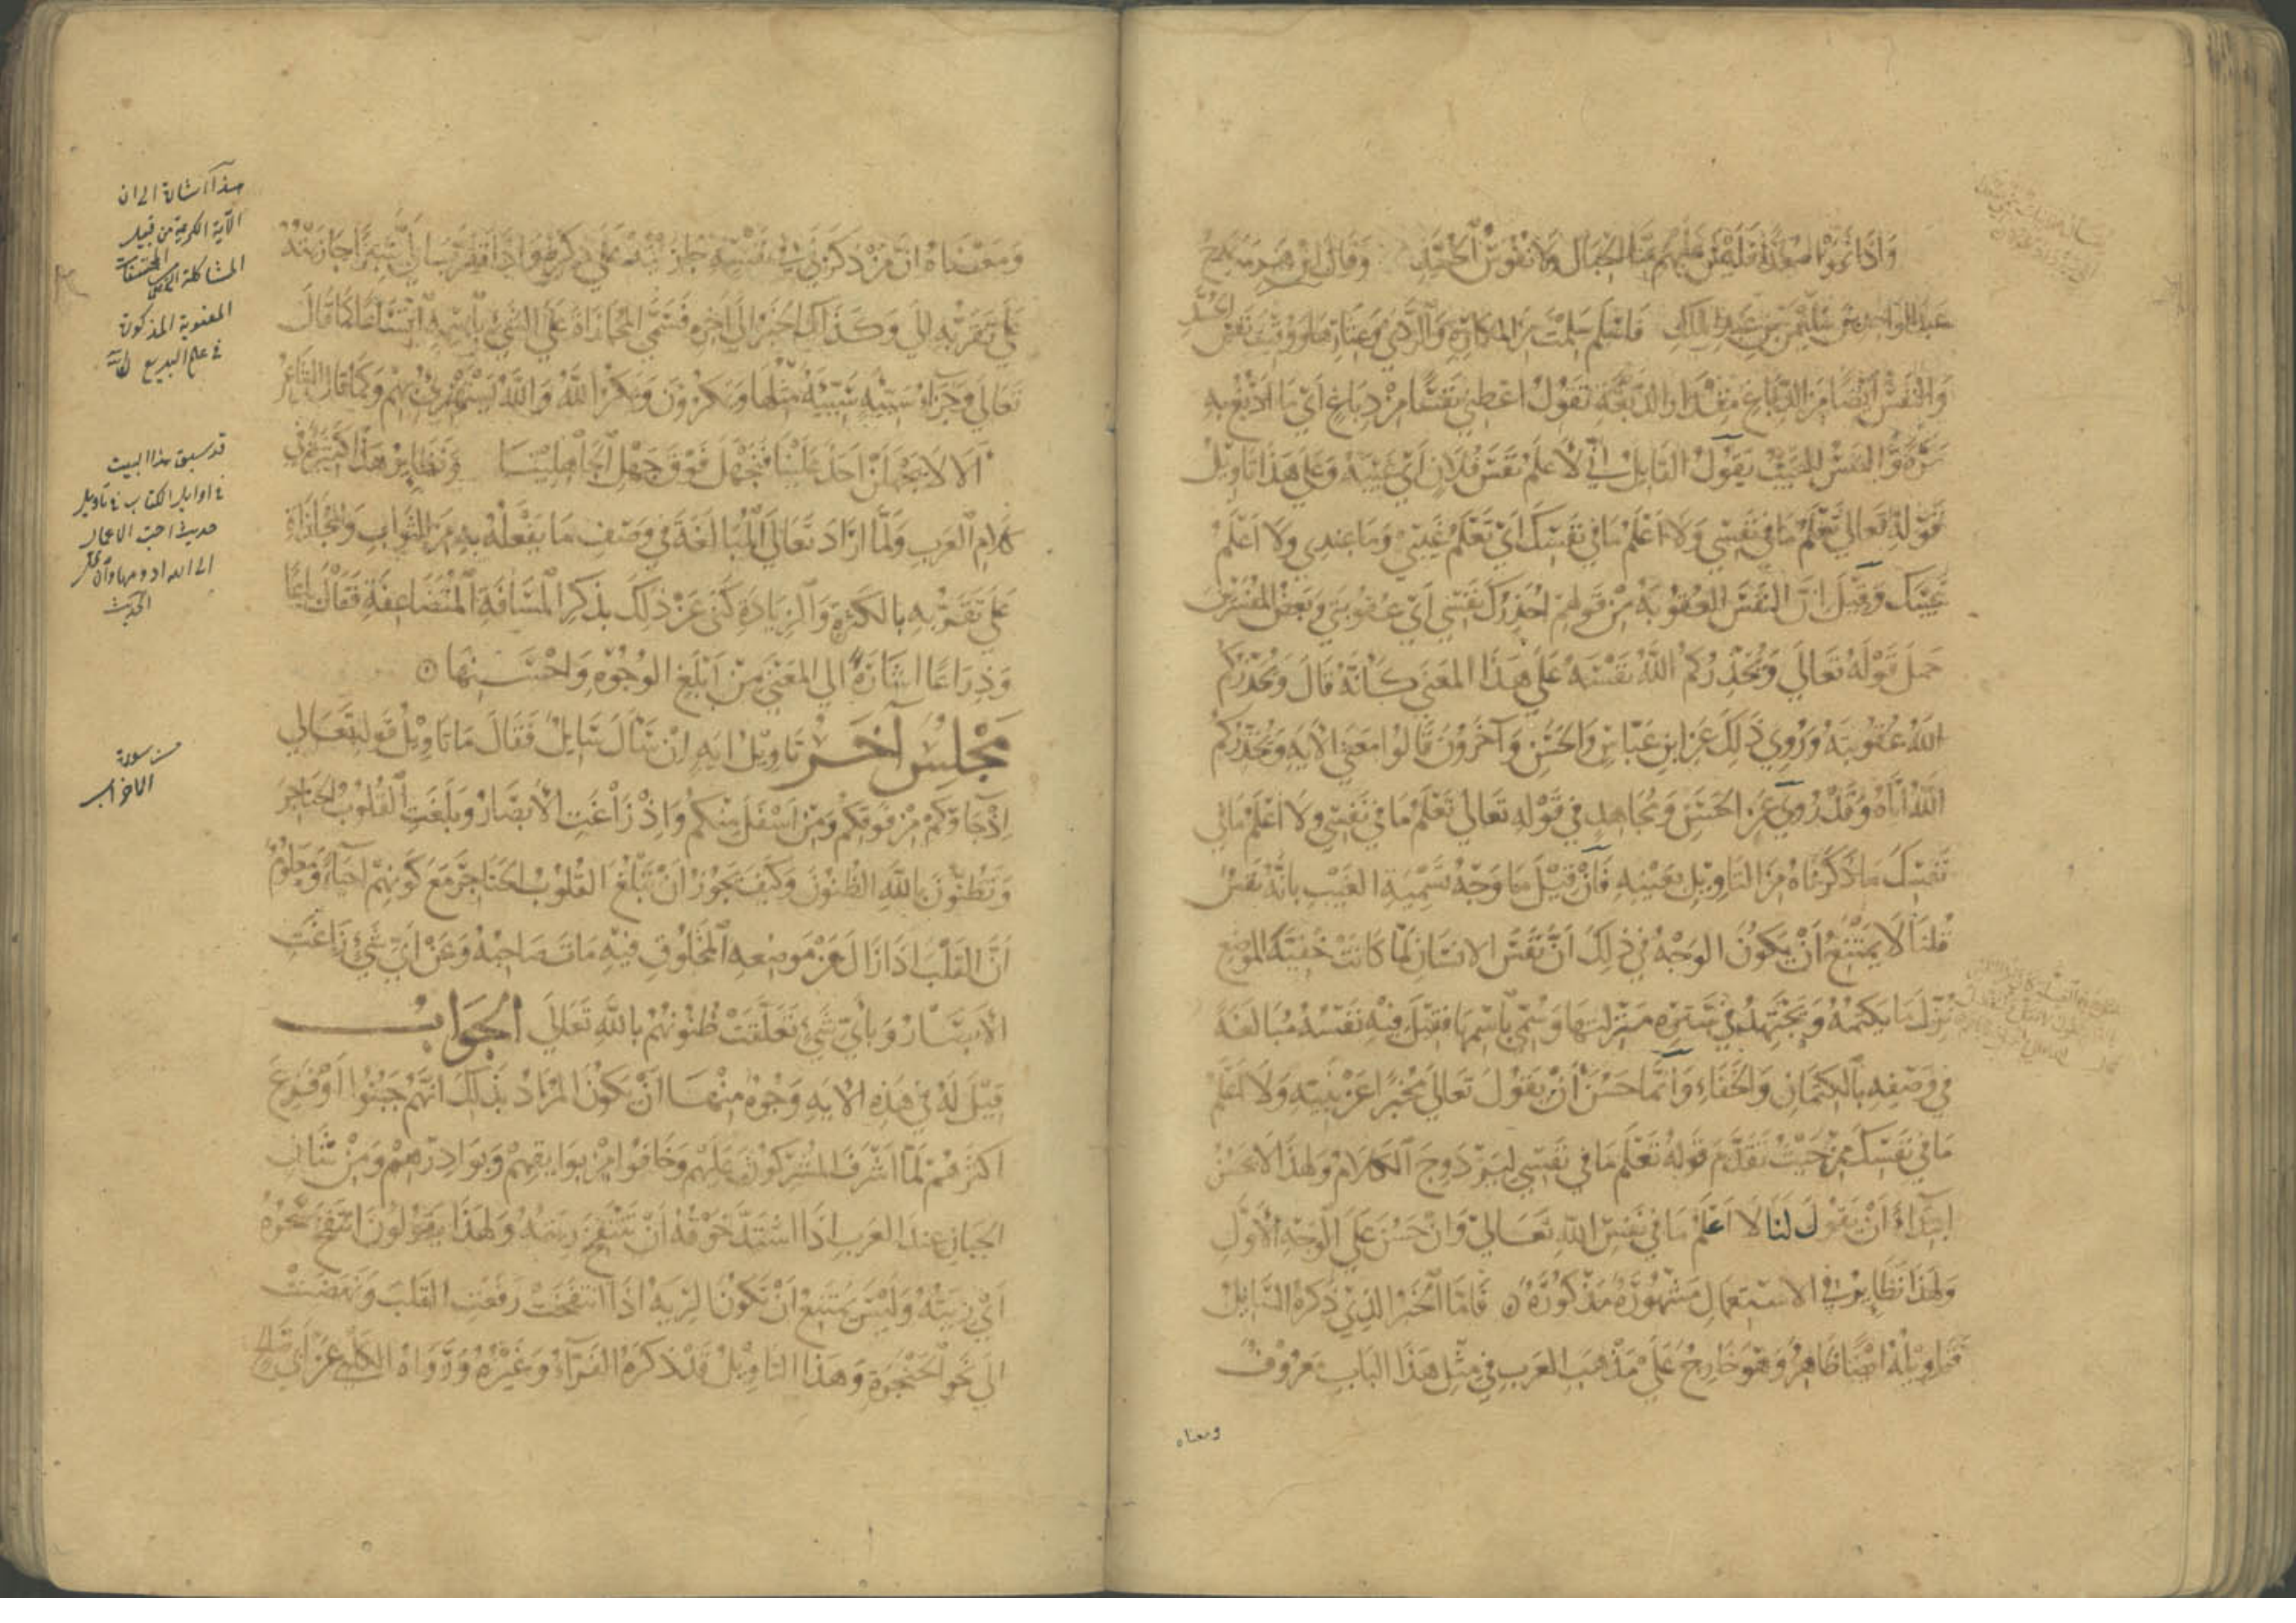 واذا نموا صعدا فليس عليهم منا الخبال ولا نفوس الحسد وقال ابن هرمة يمدح
عبد الواحد بن سليمن بن عبد الملك فاسلم سلمت من المكاره والردى وعثارها ووقيت نفس الحسد
والنفس ايضا من الدباغ مقدار الدبغة تقول اعطني نفسا من دباغ اي ما ادبغ به
مرة والنفس الغيب يقول القايل اني لا علم نفس فلان اي غيبه وعلى هذا تاويل
قوله تعالى تعلم ما في نفسي ولا اعلم ما في نفسك اي تعلم غيبي وما عندي ولا اعلم
غيبك وقيل ان النفس العقوبة من قولهم احذرك نفسي اي عقوبتي وبعض المفسرين
حمل قوله تعالى ويحذركم الله نفسه على هذا المعنى كأنه قال ويحذركم
الله عقوبته وروي ذلك عن ابن عباس والحسن وآخرون قالوا معنى الايه ويحذركم
الله اياه وقد روي عن الحسن ومجاهد في قوله تعالى تعلم ما في نفسي ولا اعلم ما في
نفسك ما ذكرناه من التاويل بعينه فان قيل ما وجه تسمية الغيب بانه نفس
قلنا لا يمتنع أن يكون الوجه في ذلك أن نفس الانسان لما كانت خفية الموضع
نزل ما يكتمه ويجتهد في ستره منزلتها وسمي باسمها فقيل فيه نفسه مبالغة
في وصفه بالكتمان والخفاء وانما حسن أن يقول تعالى مخبرا عن نبيه ولا اعلم
ما في نفسك من حيث تقدم قوله تعلم ما في نفسي ليزدوج الكلام ولهذا لا يحسن
ابتداء أن يقول لنا لا اعلم ما في نفس الله تعالى وان حسن على الوجه الأول
ولهذا نظاير في الاستعمال مشهورة مذكورة فاما الخبر الذي ذكره السايل
فتاويله ايضا ظاهر وهو خارج على مذهب العرب في مثل هذا الباب معروف
ومعناه
ومعناه ان من ذكرني في نفسه جازيته على ذكره واذا تقرب الي شبرا جازيته
على تقربه الي وكذلك الخبر الى آخره فسمي المجازاة على الشيء باسمه اتساعا كما قال
تعالى وجزاء سيئة سيئة مثلها ويمكرون ويمكر الله والله يستهزئ بهم وكما قال الشاعر
الا لا يجهلن احد علينا فنجهل فوق جهل الجاهلينا ونظاير هذا كثير في
كلام العرب ولما اراد تعالى المبالغة في وصف ما يفعله به من الثواب والمجازاة
على تقربه بالكثرة والزيادة كنى عن ذلك بذكر المسافة المتضاعفة فقال باعا
وذراعا اشارة الى المعنى من ابلغ الوجوه واحسنها
مجلس آخر تاويل ايه ان سال سايل فقال ما تاويل قوله تعالى
اذ جاؤكم من فوقكم ومن اسفل منكم واذ زاغت الأبصار وبلغت القلوب الحناجر
وتظنون بالله الظنون وكيف يجوز أن تبلغ القلوب الحناجر مع كونهم احياء ومعلوم
ان القلب اذا زال عن موضعه المخلوق فيه مات صاحبه وعن اي شيء زاغت
الابصار وبأي شيء تعلقت ظنونهم بالله تعالى الجواب
قيل له في هذه الايه وجوه منها ان يكون المراد بذلك انهم جبنوا وفزع
اكثرهم لما اشرف المشركون عليهم وخافوا من بوايقهم وبوادرهم ومن شان
الجبان عند العرب اذا اشتد خوفه ان تنتفخ ريته ولهذا يقولون انتفخ سحره
اي ريته وليس يمتنع ان تكون الرية اذا انتفخت رفعت القلب ونهضت
الى نحو الحنجرة وهذا التاويل قد ذكره الفراء وغيره ورواه الكلبي عن أبي صالح
هذا اشارة الى ان
الآية الكريمة من قبيل
المشاكلة
المعنوية المذكورة
في علم البديع
قد سبق هذا البيت
في اوايل الكتاب في تاويل
حديث احب الاعمال
الى الله ادومها وان قل
الحديث
من سورة
الاحزاب